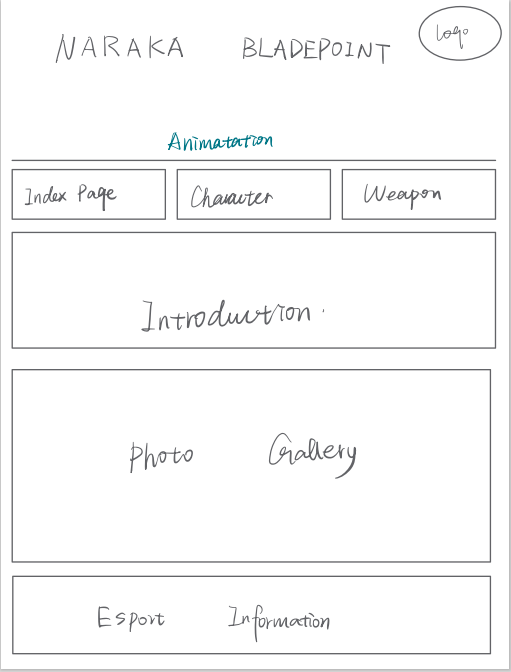 NARAKA BLADEPOINT
Logo
Animatation
Index Page
Character
Weapon
Introduction.
Photo Gallery
Esport Information